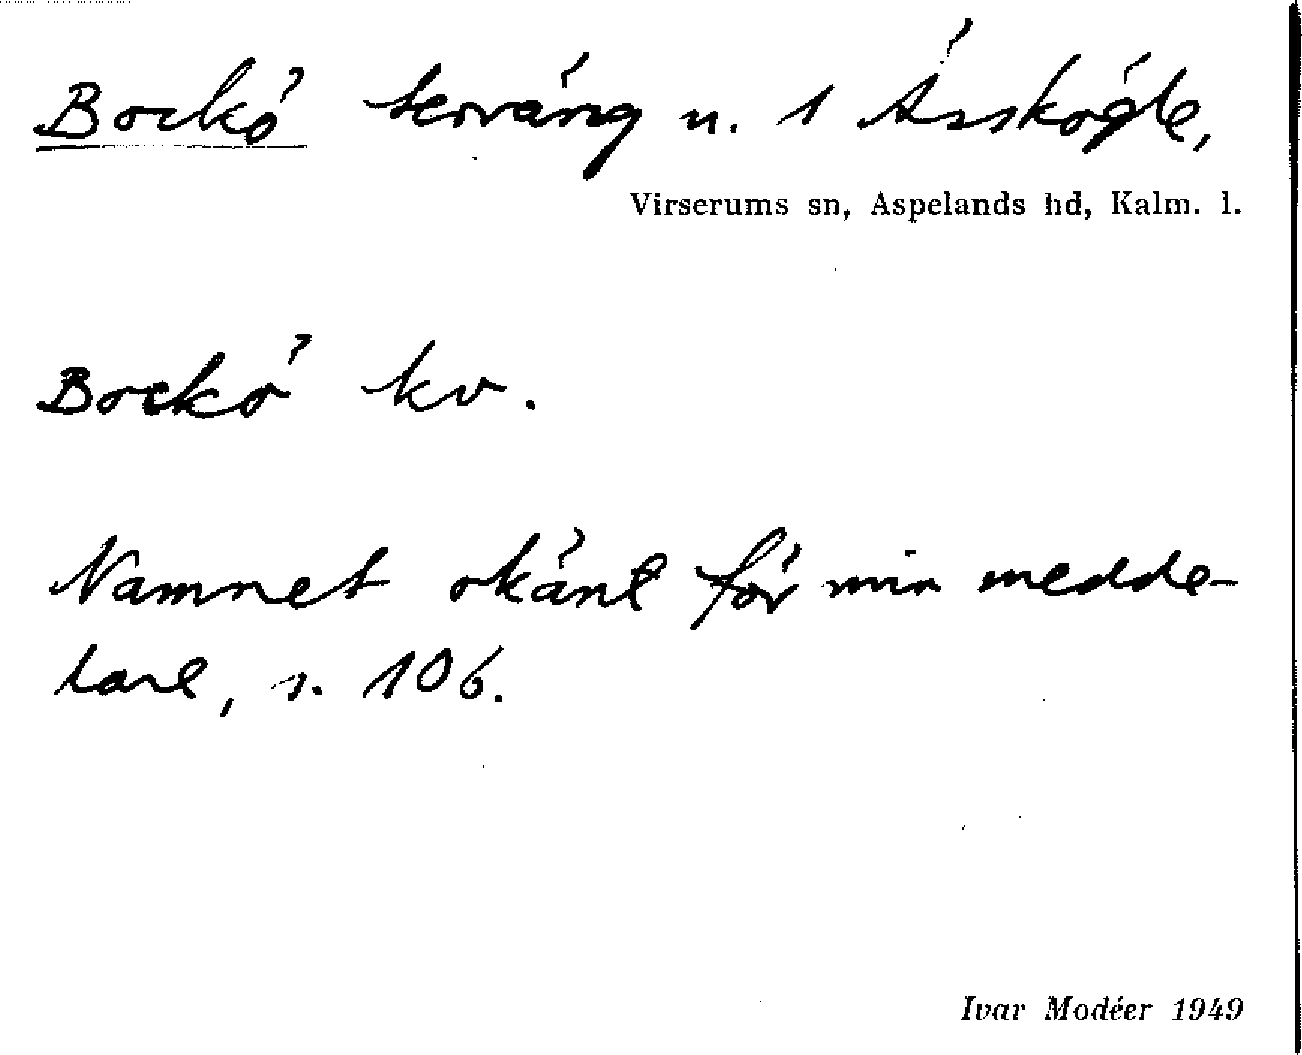 Bockö terräng u. 1 Åsskögle,
Virserums sn, Aspelands hd, Kalm. l.
Bockö kv.
Namnet okänt för min medde-
lare, s. 106.
Ivar Modéer 1949